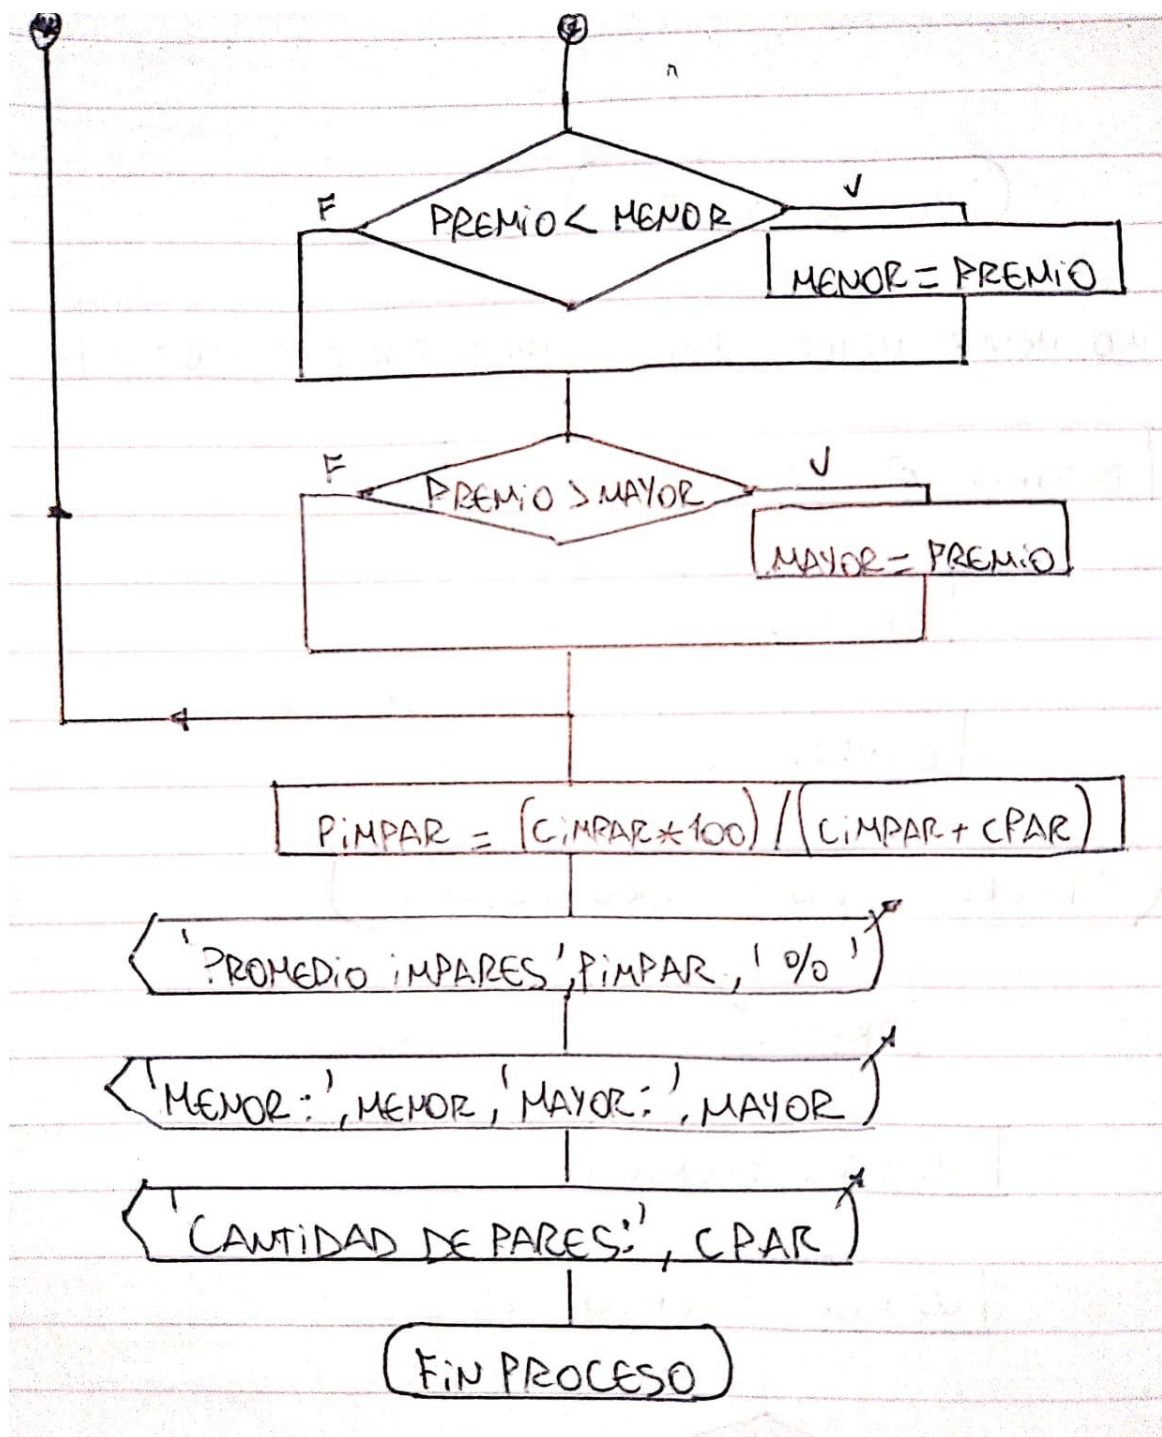 F
PREMiO < MENOR
V
MENOR = PREMiO
F
PREMiO > MAYOR
V
MAYOR = PREMiO
PiMPAR = (CiMPAR*100) / (CiMPAR + CPAR)
'PROMEDiO iMPARES', PiMPAR, '%'
'MENOR:', MENOR, 'MAYOR:', MAYOR
'CANTiDAD DE PARES:', CPAR
FiN PROCESO